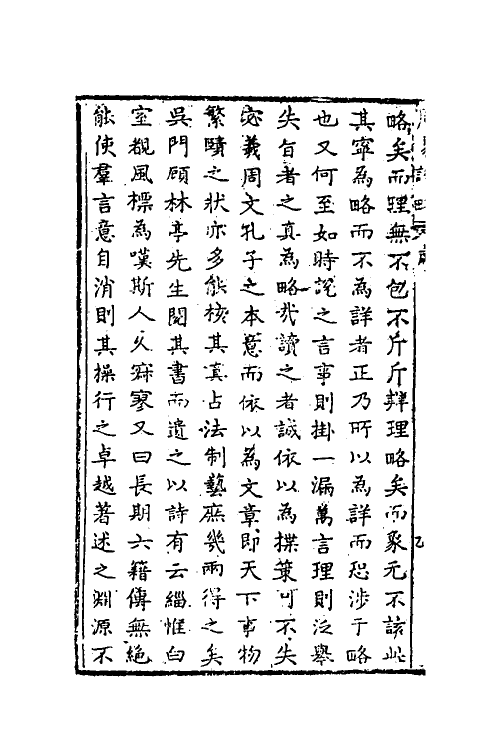 略矣而理無不包不斤斤辯理略矣而象无不該此
其寜為略而不為詳者正乃所以為詳而恐涉于略
也又何至如時說之言事則掛一漏萬言理則泛舉
失旨者之真為略哉讀之者誠依以為揲筞可不失
宓羲周文孔子之本意而依以為文章即天下事物
繁賾之狀亦多能核其真占法制藝庶幾兩得之矣
吳門顧林亭先生閱其書而遺之以詩有云緇帷白
室覩風標為嘆斯人久寂寥又曰長期六籍傳無絕
能使羣言意自消則其操行之卓越著述之淵源不